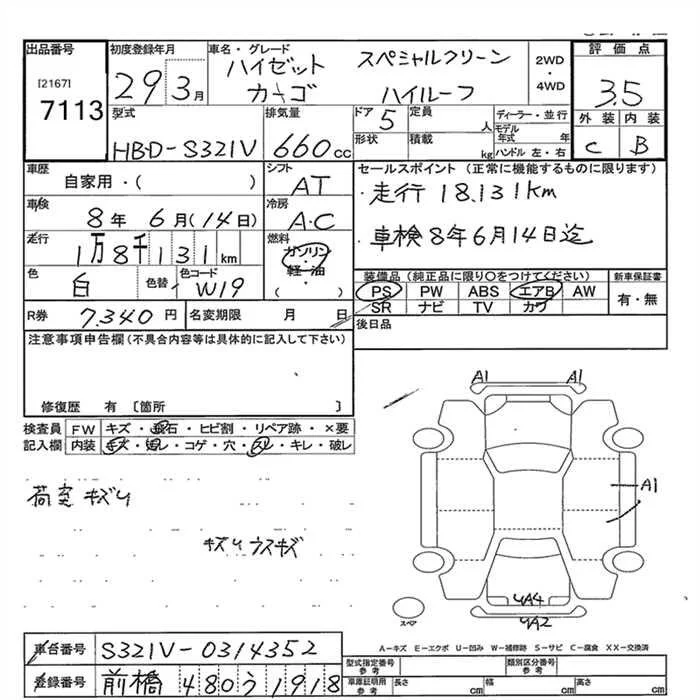 出品番号
[2167]
7113
初度登録年月
29 3月
車名・グレード
ハイゼット
カーゴ
スペシャルクリーン
ハイルーフ
2WD
・
4WD
評価点
3.5
外装 内装
C B
型式
HBD-S321V
排気量
660cc
ドア 5
定員 人
形状
積載 kg
ディーラー・並行
モデル年式 年
ハンドル 左・右
車歴
自家用・( )
シフト
AT
車検
8年 6月(14日)
冷房
A・C
走行
1万8千131km
燃料
ガソリン
・
軽油
( )
色
白
色替
色コード
W19
R券 7,340円
名変期限 月 日
セールスポイント (正常に機能するものに限ります)
・走行 18.131km
・車検8年6月14日迄
装備品(純正品に限り〇をつけてください)
PS PW ABS エアB AW
SR ナビ TV カワ
新車保証書
有・無
後日品
注意事項申告欄(不具合内容等は具体的に記入して下さい)
修復歴 有〔箇所 〕
検査員記入欄
FW キズ・飛石・ヒビ割・リペア跡・×要
内装 キズ・汚レ・コゲ・穴・スレ・キレ・破レ
荷室キズU
キズUウスキズ
A1 A1
A1
UA4
UA2
スペア
A-キズ E-エクボ U-凹み W-補修跡 S-サビ C-腐食 XX-交換済
車台番号 S321V-0314352
登録番号 前橋480う1918
型式指定番号 参考
類別区分番号 参考
車庫証明用 参考
長さ cm 幅 cm 高さ cm